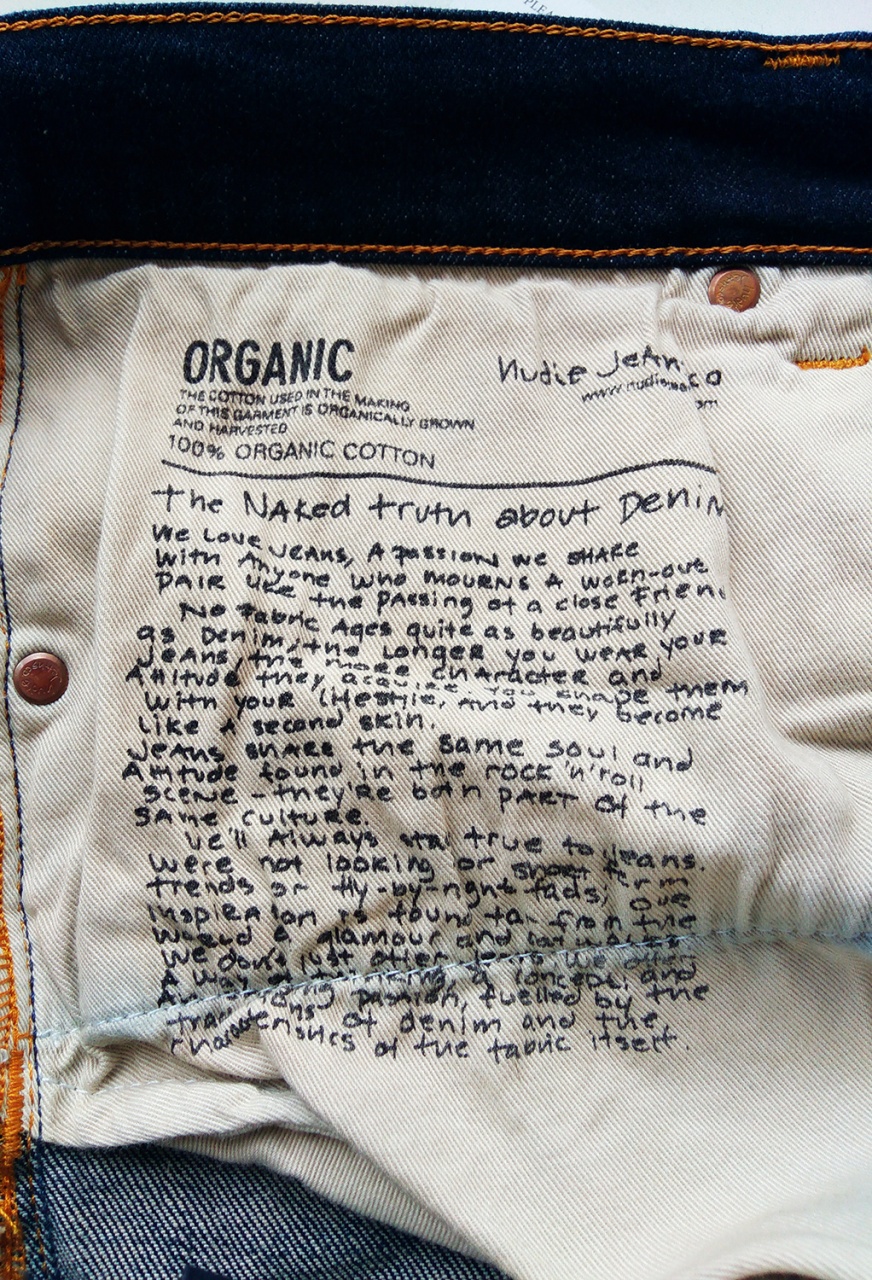 PLEA
ORGANIC
THE COTTON USED IN THE MAKING
OF THIS GARMENT IS ORGANICALLY GROWN
AND HARVESTED
100% ORGANIC COTTON
Nudie Jean
co
www.nudie
om
The Naked truth about Denim
We Love Jeans, A passion we share
with Anyone who mourns A worn-out
pair like the passing of a close Frien
No fabric Ages quite as beautifully
as Denim, the longer you wear your
jeans, the more character and
Attitude they acquire. You shape them
with your lifestyle, and they become
like A second skin.
Jeans share the same soul and
Attitude found in the rock 'n' roll
scene - they're both part of the
same culture.
We'll Always stay true to jeans.
We're not looking for short term
trends or fly-by-night fads, our
inspiration is found far from the
world of glamour and
We don't just offer jeans we offer
A way of thinking, a concept and
passion, fuelled by the
traditions of denim and the
characteristics of the fabric itself.